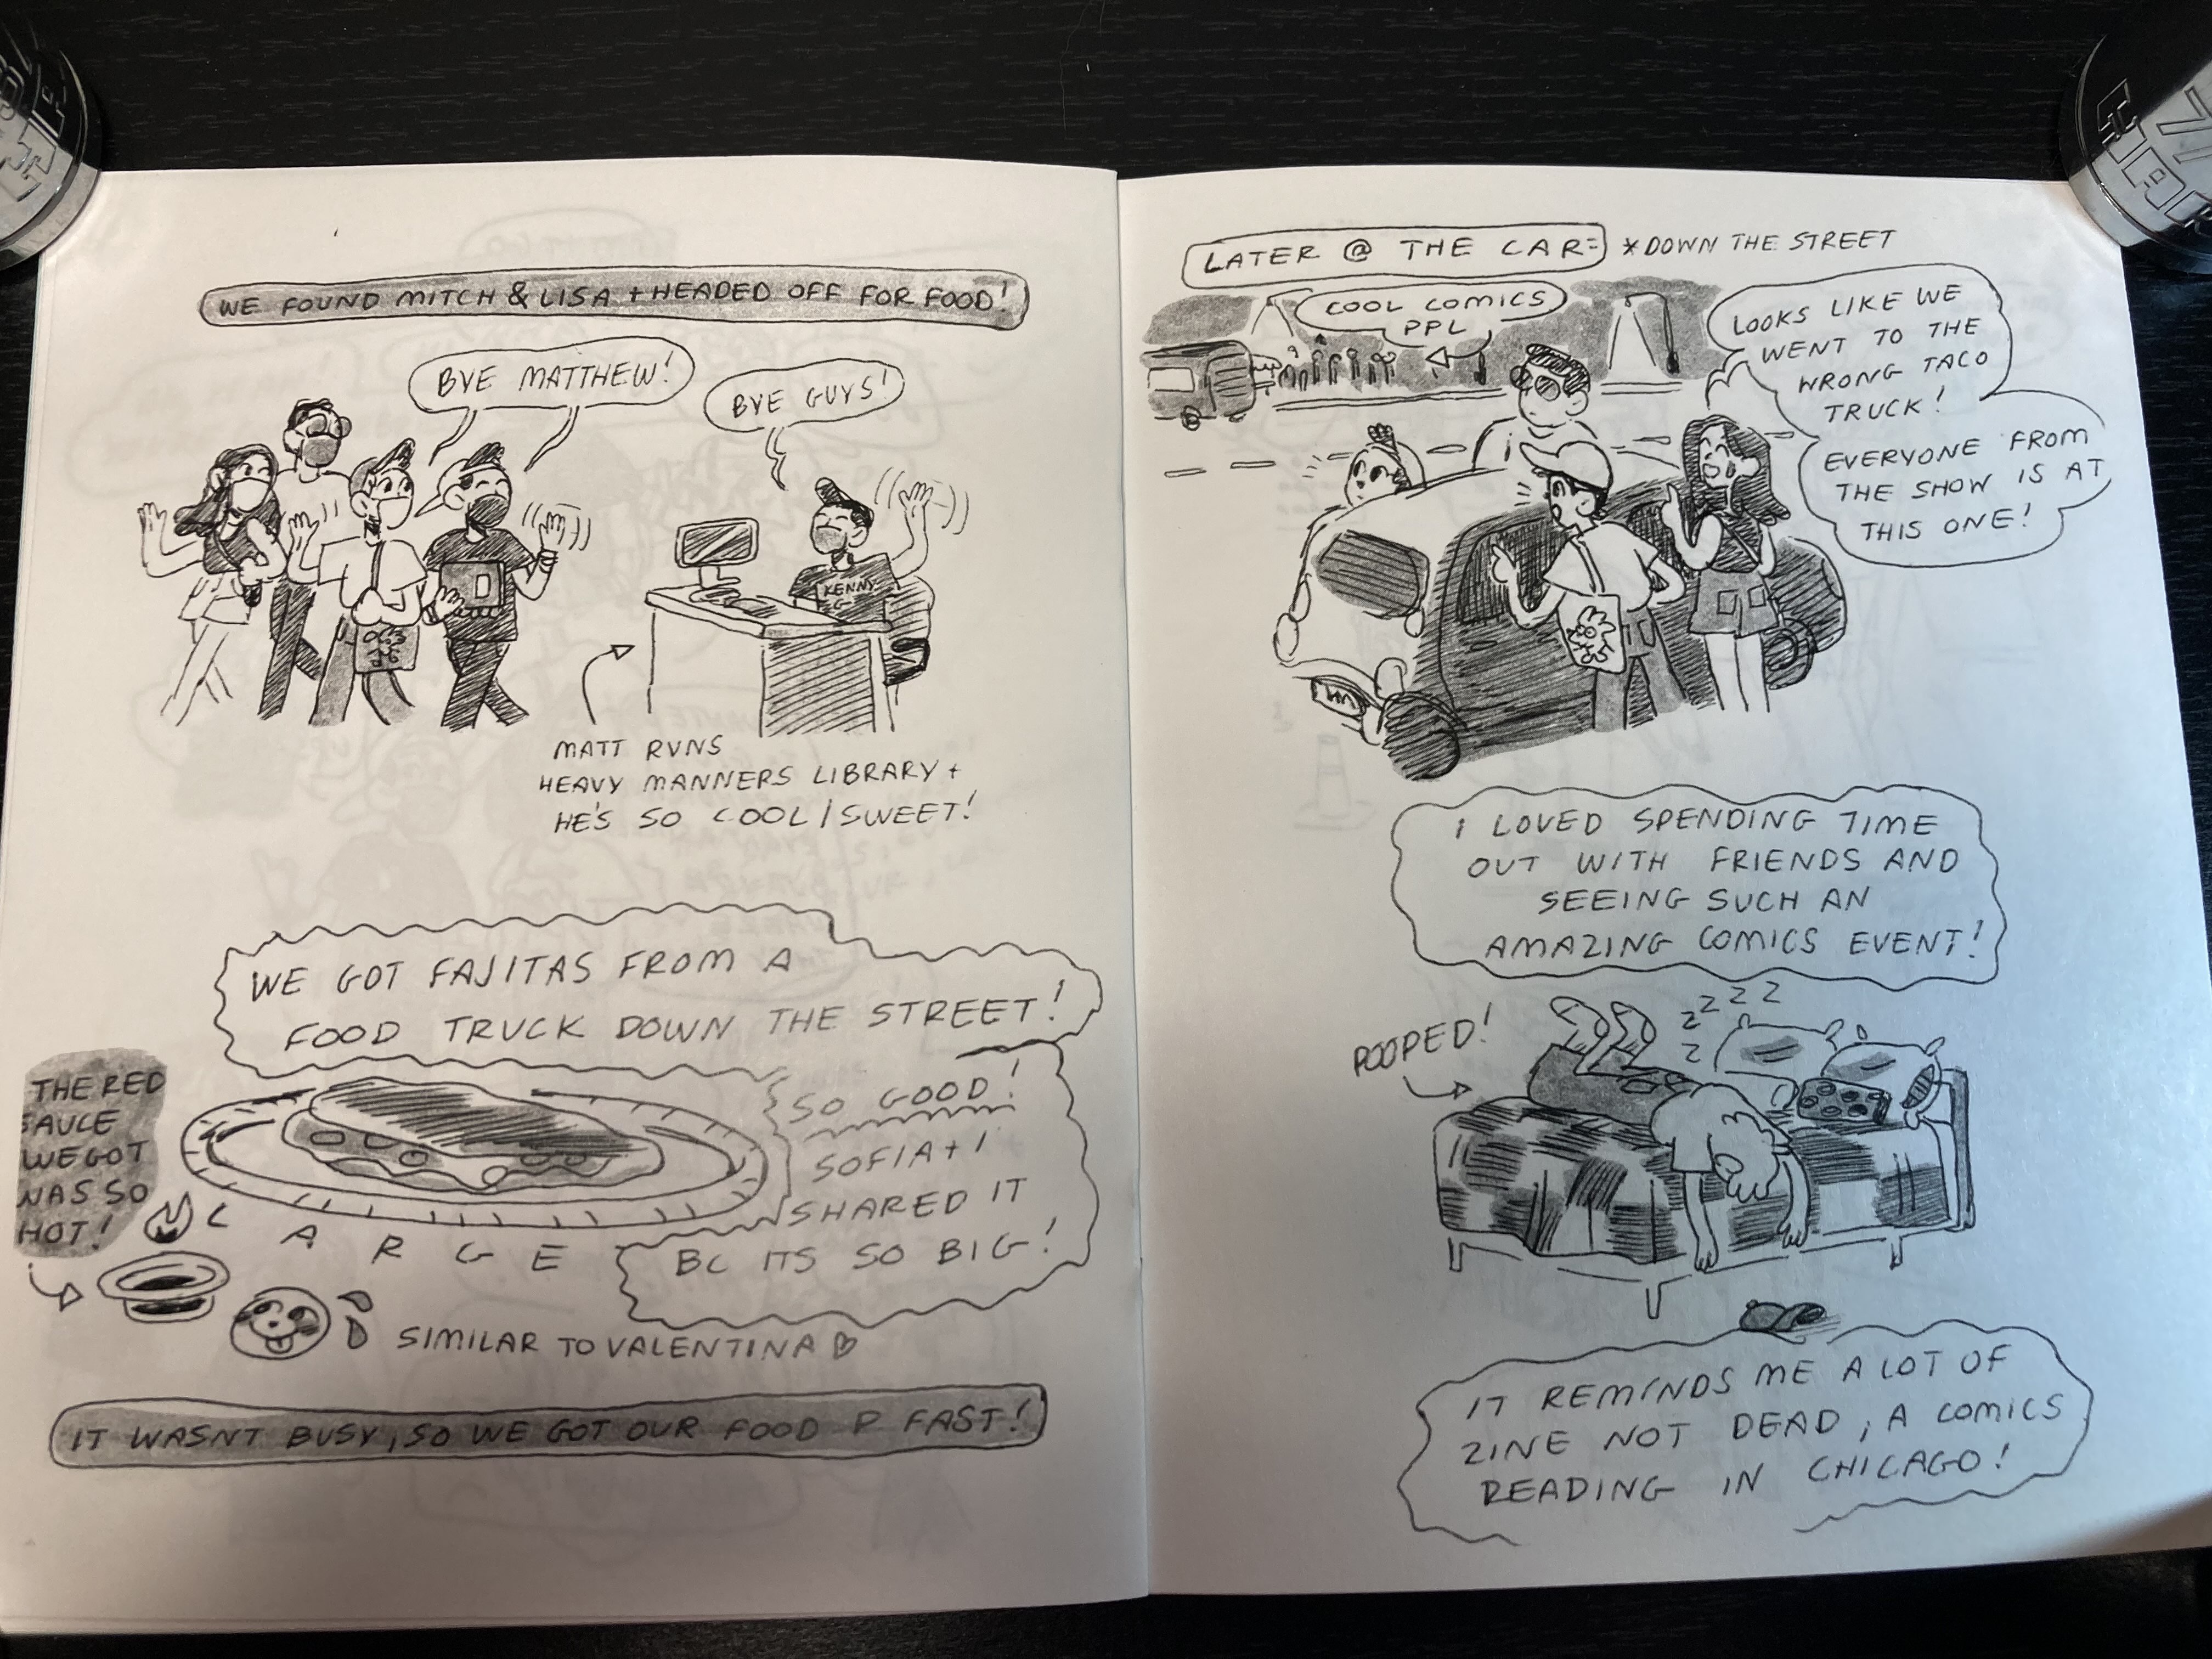 WE FOUND MITCH & LISA + HEADED OFF FOR FOOD!
BYE MATTHEW!
BYE GUYS!
KENNY
G
MATT RUNS
HEAVY MANNERS LIBRARY +
HE'S SO COOL/SWEET!
WE GOT FAJITAS FROM A
FOOD TRUCK DOWN THE STREET!
SO GOOD!
SOFIA + I
SHARED IT
BC ITS SO BIG!
THE RED
SAUCE
WE GOT
WAS SO
HOT!
L A R G E
SIMILAR TO VALENTINA
IT WASNT BUSY, SO WE GOT OUR FOOD P FAST!
LATER @ THE CAR= *DOWN THE STREET
COOL COMICS
PPL
LOOKS LIKE WE
WENT TO THE
WRONG TACO
TRUCK!
EVERYONE FROM
THE SHOW IS AT
THIS ONE!
I LOVED SPENDING TIME
OUT WITH FRIENDS AND
SEEING SUCH AN
AMAZING COMICS EVENT!
POOPED!
Z Z Z Z Z
IT REMINDS ME A LOT OF
ZINE NOT DEAD, A COMICS
READING IN CHICAGO!